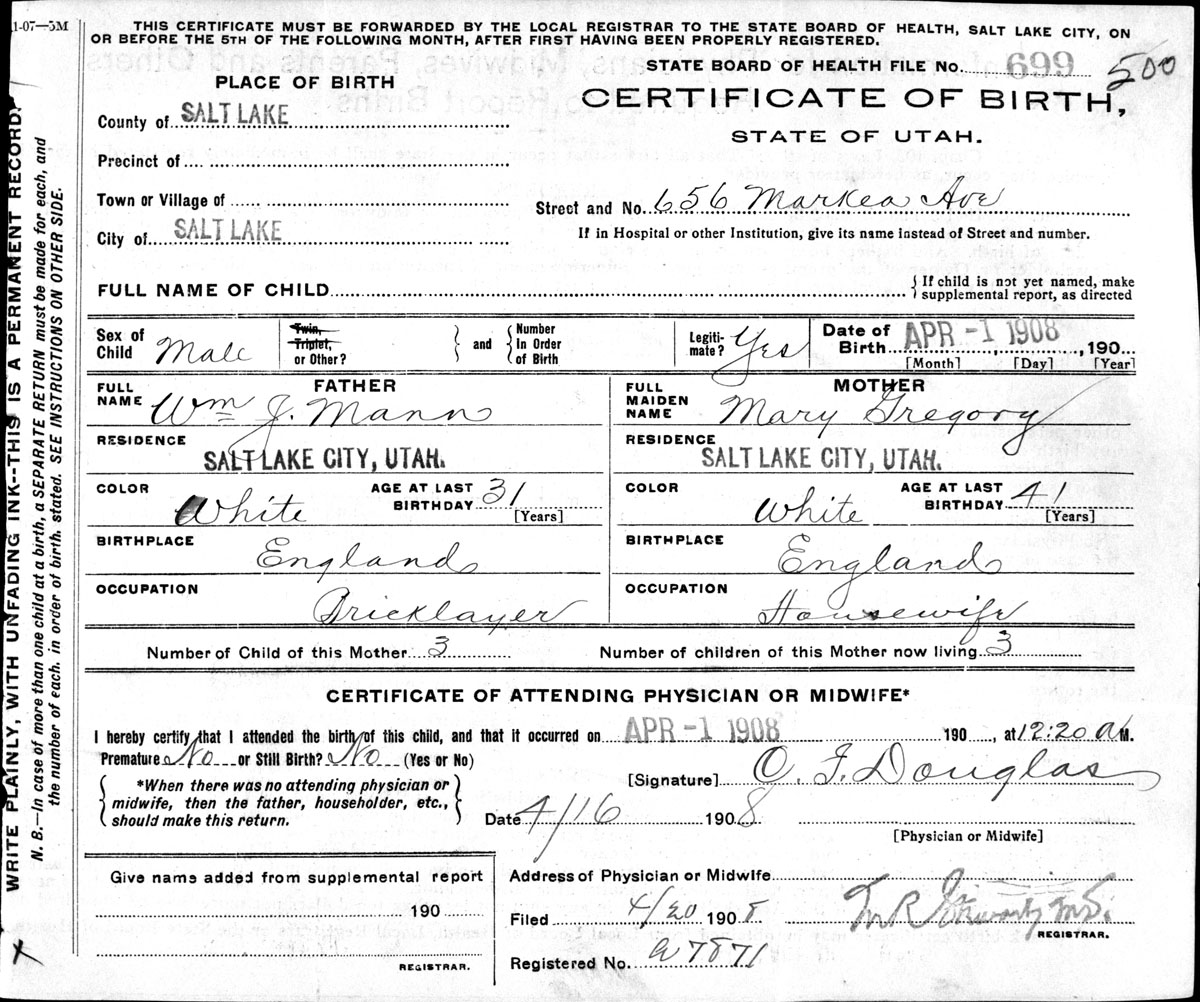 1-07—5M
THIS CERTIFICATE MUST BE FORWARDED BY THE LOCAL REGISTRAR TO THE STATE BOARD OF HEALTH, SALT LAKE CITY, ON
OR BEFORE THE 5TH OF THE FOLLOWING MONTH, AFTER FIRST HAVING BEEN PROPERLY REGISTERED.
STATE BOARD OF HEALTH FILE NO. 699 500
PLACE OF BIRTH
CERTIFICATE OF BIRTH,
STATE OF UTAH.
County of SALT LAKE
Precinct of
Town or Village of
Street and No. 656 Markea Ave
City of SALT LAKE
If in Hospital or other Institution, give its name instead of Street and number.
FULL NAME OF CHILD
If child is not yet named, make
supplemental report, as directed
Sex of Child Male
Twin, Triplet, or Other?
and
Number In Order of Birth
Legiti-mate? Yes
Date of Birth APR -1 1908, 190
[Month] [Day] [Year]
FATHER
FULL NAME Wm J. Mann
MOTHER
FULL MAIDEN NAME Mary Gregory
RESIDENCE
SALT LAKE CITY, UTAH.
RESIDENCE
SALT LAKE CITY, UTAH.
COLOR White
AGE AT LAST BIRTHDAY 31
[Years]
COLOR White
AGE AT LAST BIRTHDAY 41
[Years]
BIRTHPLACE
England
BIRTHPLACE
England
OCCUPATION
Bricklayer
OCCUPATION
Housewife
Number of Child of this Mother 3
Number of children of this Mother now living 3
CERTIFICATE OF ATTENDING PHYSICIAN OR MIDWIFE*
I hereby certify that I attended the birth of this child, and that it occurred on APR -1 1908 190 , at 12:20 A M.
Premature No or Still Birth? No (Yes or No)
*When there was no attending physician or
midwife, then the father, householder, etc.,
should make this return.
[Signature] O. F. Douglas
Date 4/16 1908
[Physician or Midwife]
Give name added from supplemental report
190
REGISTRAR.
Address of Physician or Midwife
Filed 4/20 1908
REGISTRAR.
Registered No. a 7871
WRITE PLAINLY, WITH UNFADING INK--THIS IS A PERMANENT RECORD.
N. B.—In case of more than one child at a birth, a SEPARATE RETURN must be made for each, and
the number of each, in order of birth, stated. SEE INSTRUCTIONS ON OTHER SIDE.